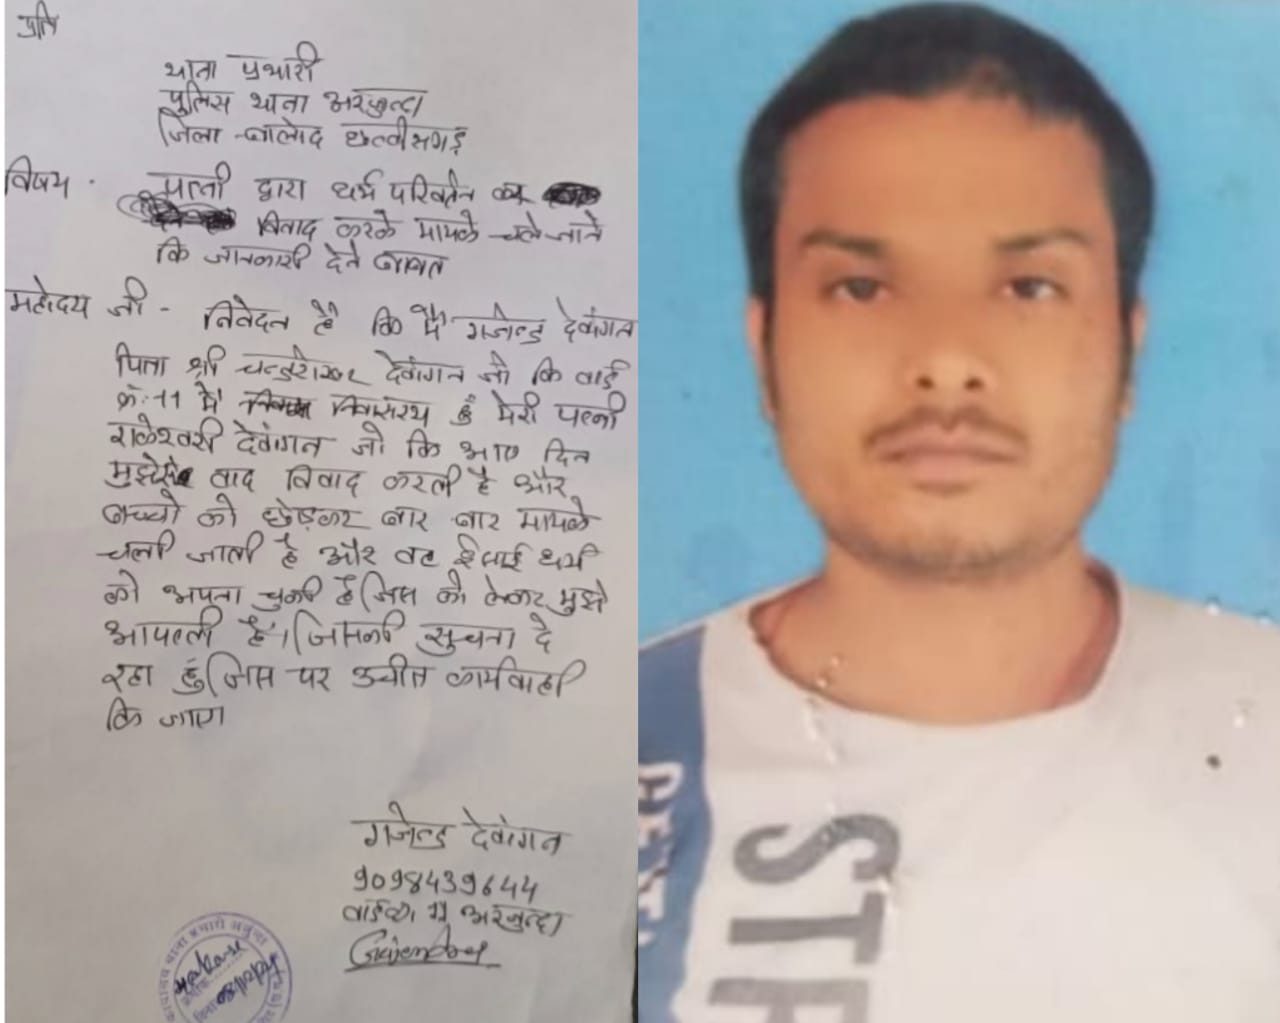 प्रति
थाना प्रभारी
पुलिस थाना अरजुन्दा
जिला - बालोद छत्तीसगढ़
विषय - पत्नी द्वारा धर्म परिवर्तन कर
विवाद करके मायके चले जाने
कि जानकारी देने बाबत
महोदय जी - निवेदन है कि मैं गजेन्द्र देवांगन
पिता श्री चन्द्रशेखर देवांगन जो कि वार्ड
क्रं. 11 में निवासरथ हुं मेरी पत्नी
राकेश्वरी देवांगन जो कि आए दिन
मुझसे वाद विवाद करती है और
बच्चो को छोड़कर बार बार मायके
चली जाती है और वह ईसाई धर्म
को अपना चुकी है जिस को लेकर मुझे
आपत्ती है। जिसकी सुचना दे
रहा हुं जिस पर उचीत कार्यवाही
कि जाए
गजेन्द्र देवांगन
9098439644
वार्ड क्र. 11 अरजुन्दा
Gajendra
थाना प्रभारी अर्जुन्दा
STR